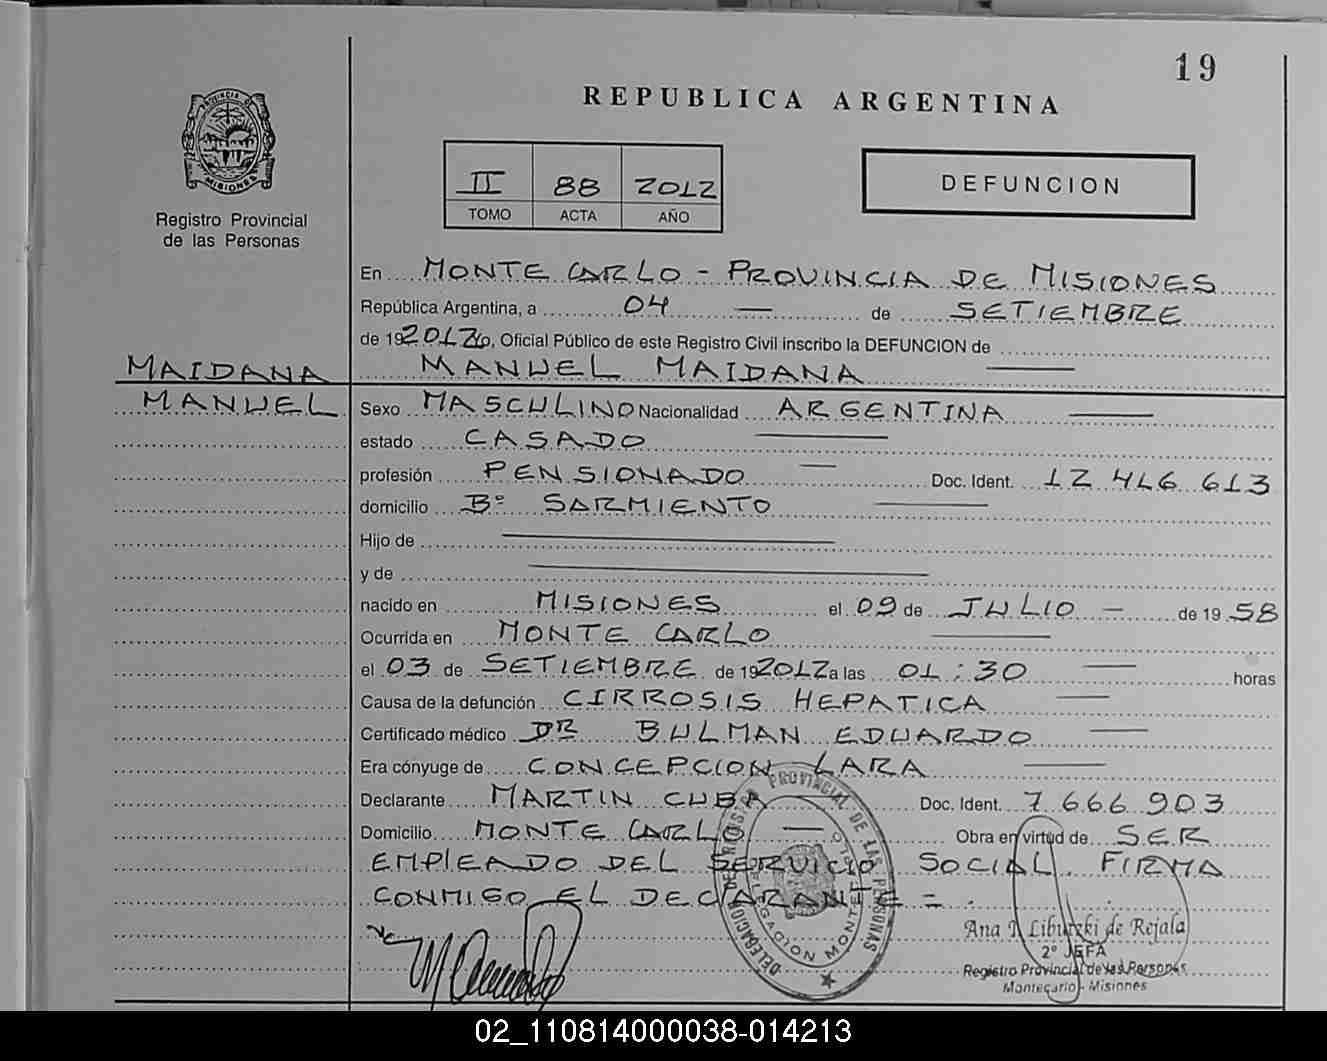 19
REPUBLICA ARGENTINA
PROVINCIA DE
MISIONES
Registro Provincial
de las Personas
II 88 2012
TOMO ACTA AÑO
DEFUNCION
En MONTE CARLO - PROVINCIA DE MISIONES
República Argentina, a 04 — de SETIEMBRE
de 19 2012, Oficial Público de este Registro Civil inscribo la DEFUNCION de
MANUEL MAIDANA —
MAIDANA
MANUEL
Sexo MASCULINO Nacionalidad ARGENTINA —
estado CASADO —
profesión PENSIONADO — Doc. Ident. 12 416 613
domicilio Bº SARMIENTO —
Hijo de —
y de —
nacido en MISIONES el 09 de JULIO — de 19 58
Ocurrida en MONTE CARLO —
el 03 de SETIEMBRE de 19 2012 a las 01:30 — horas
Causa de la defunción CIRROSIS HEPATICA —
Certificado médico DR BULMAN EDUARDO —
Era cónyuge de CONCEPCION LARA —
Declarante MARTIN CUBA Doc. Ident. 7 666 903
Domicilio MONTE CARLO — Obra en virtud de SER
EMPLEADO DEL SERVICIO SOCIAL. FIRMA
CONMIGO EL DECLARANTE = .
PROVINCIAL DE LAS PERSONAS
DELEGACION MONTE
Ana I. Libutzki de Rejala
2º JEFA
Registro Provincial de las Personas
Montecarlo - Misiones
02_110814000038-014213